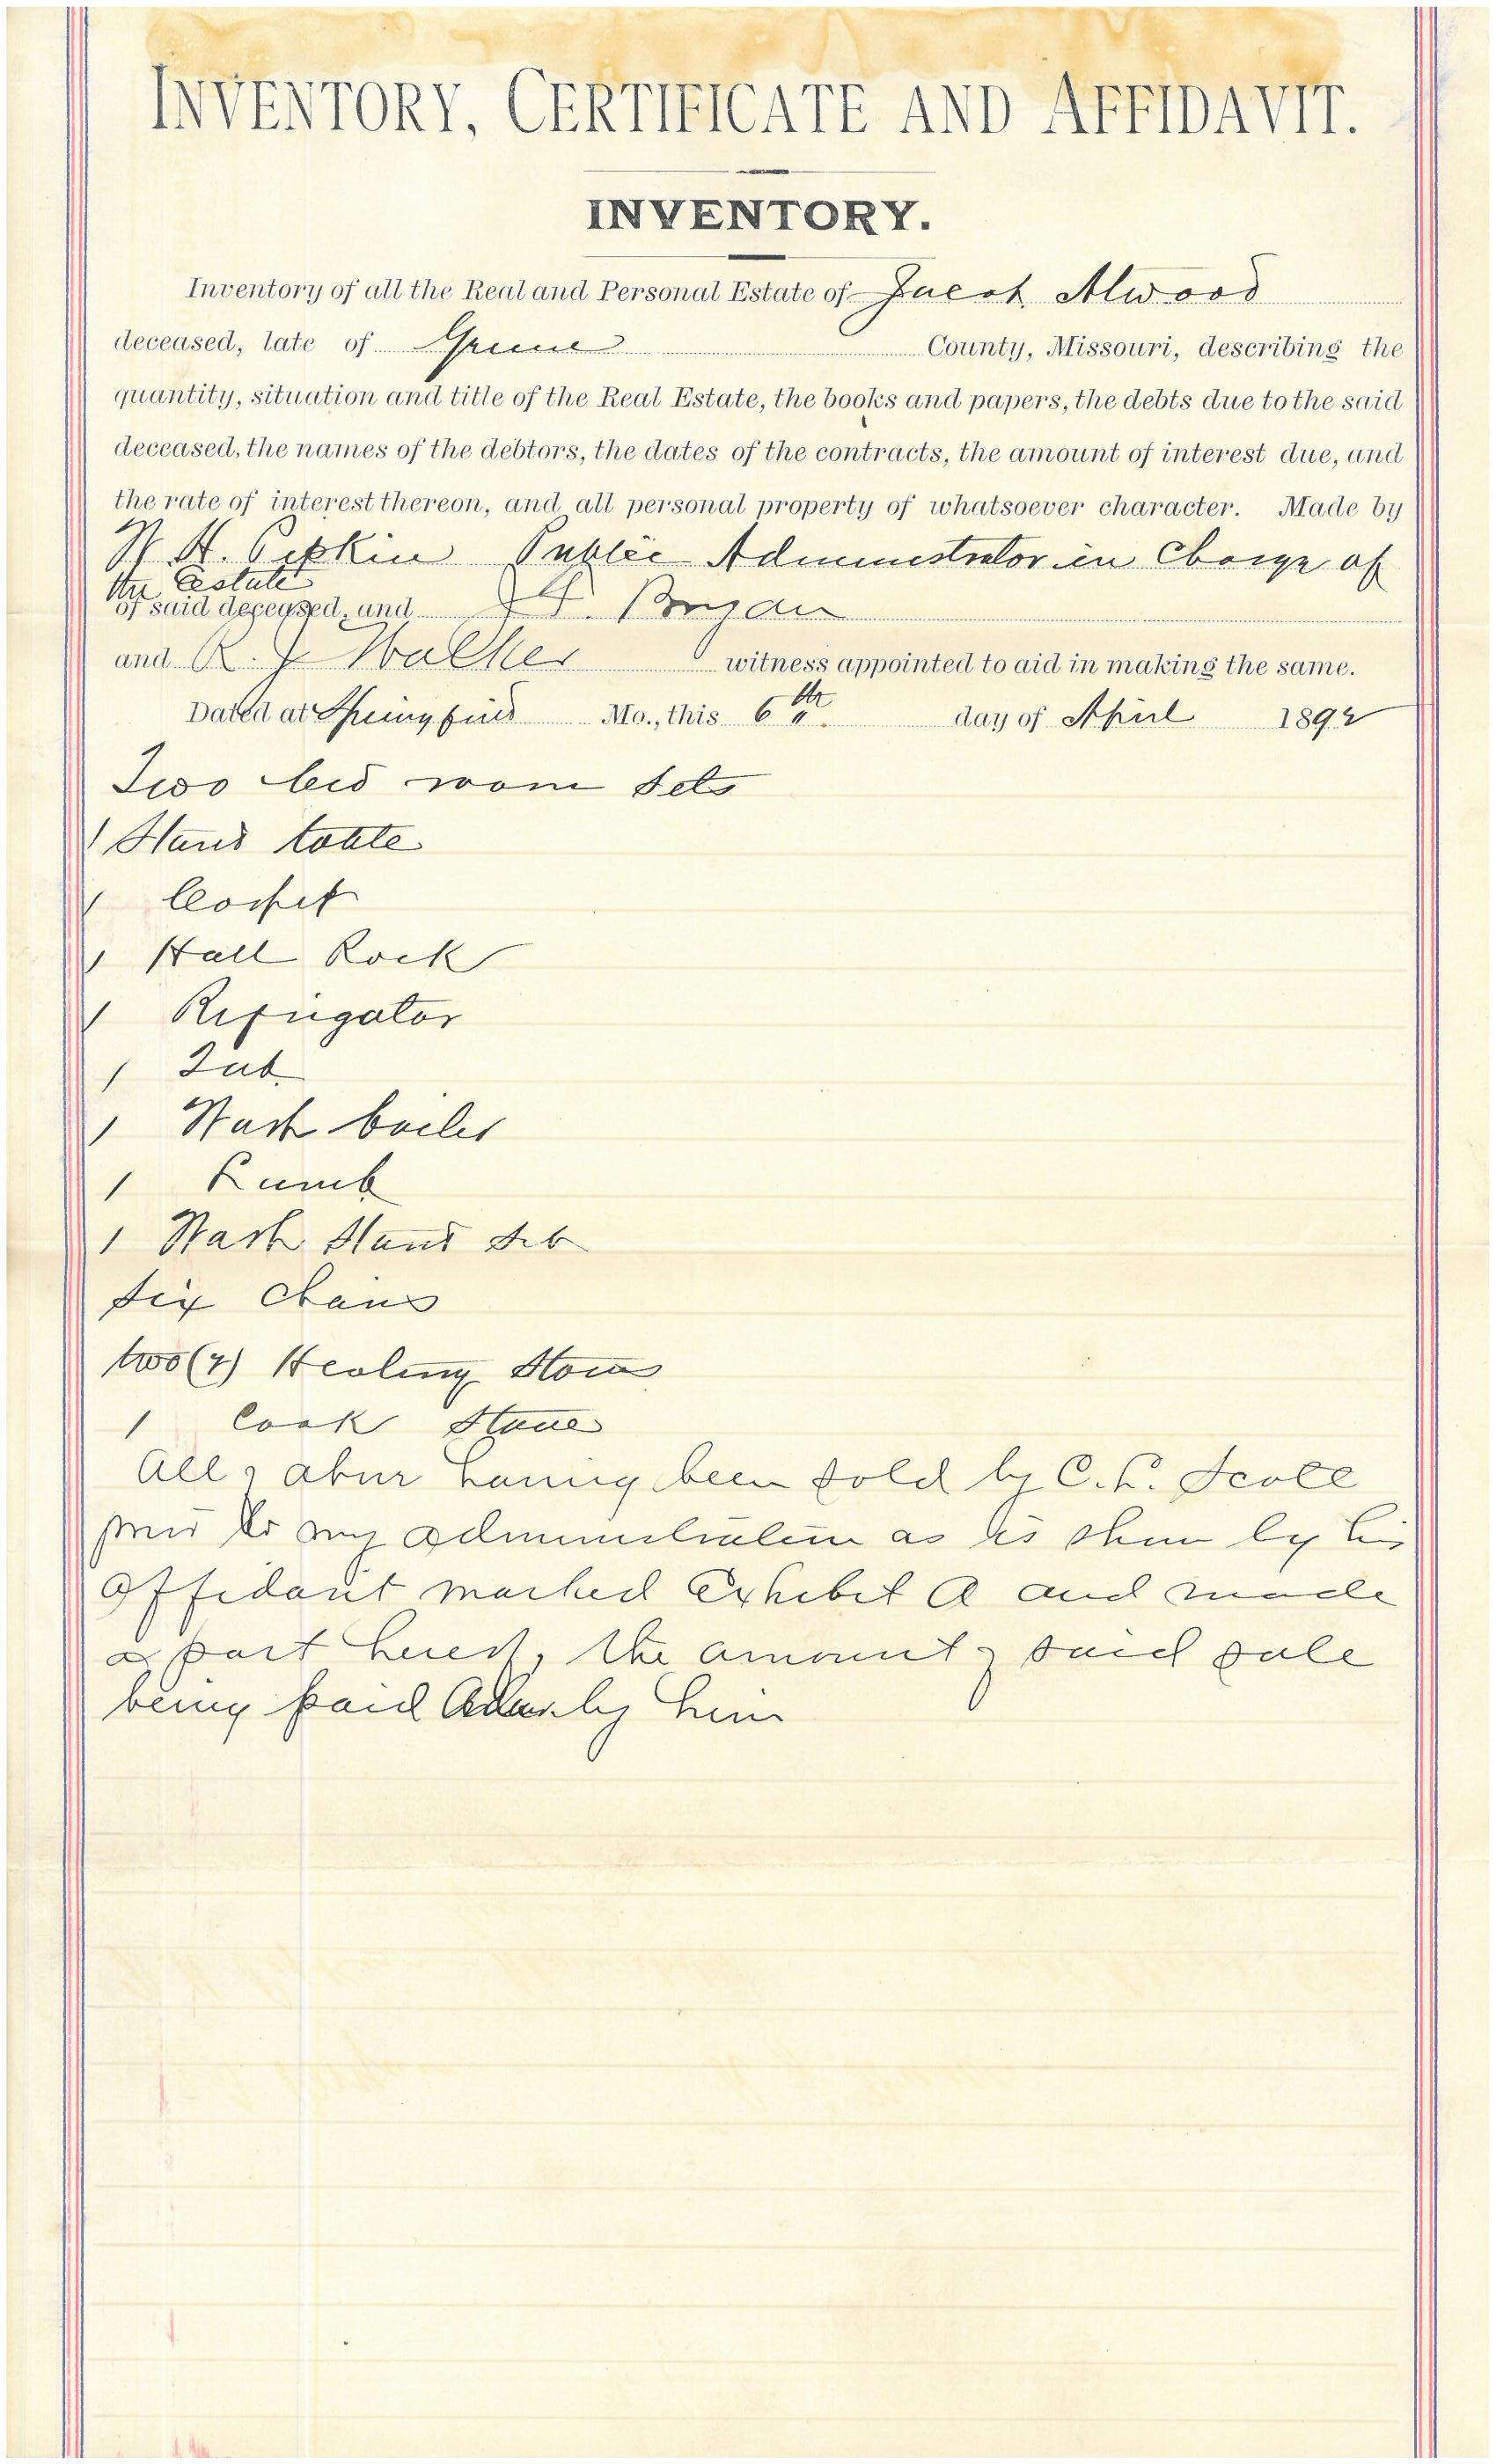 INVENTORY, CERTIFICATE AND AFFIDAVIT.
INVENTORY.
Inventory of all the Real and Personal Estate of Jacob Atwood
deceased, late of Greene County, Missouri, describing the
quantity, situation and title of the Real Estate, the books and papers, the debts due to the said
deceased, the names of the debtors, the dates of the contracts, the amount of interest due, and
the rate of interest thereon, and all personal property of whatsoever character. Made by
W. H. Pipkin Public Administrator in Charge of
the Estate
of said deceased, and Bryan
and R. J. Walker witness appointed to aid in making the same.
Dated at Springfield Mo., this 6th day of April 1892
Two bed room sets
1 Stand table
1 Carpet
1 Hall Rack
1 Refrigator
1 Tub
1 Wash boiler
1
1 Wash Stand Set
Six Chairs
two (2) Heating Stoves
1 Cook Stove
All of above having been sold by C. L. Scott
prior to my administration as is shown by his
affidavit marked Exhibit A and made
a part hereof, the amount of said sale
being paid by him